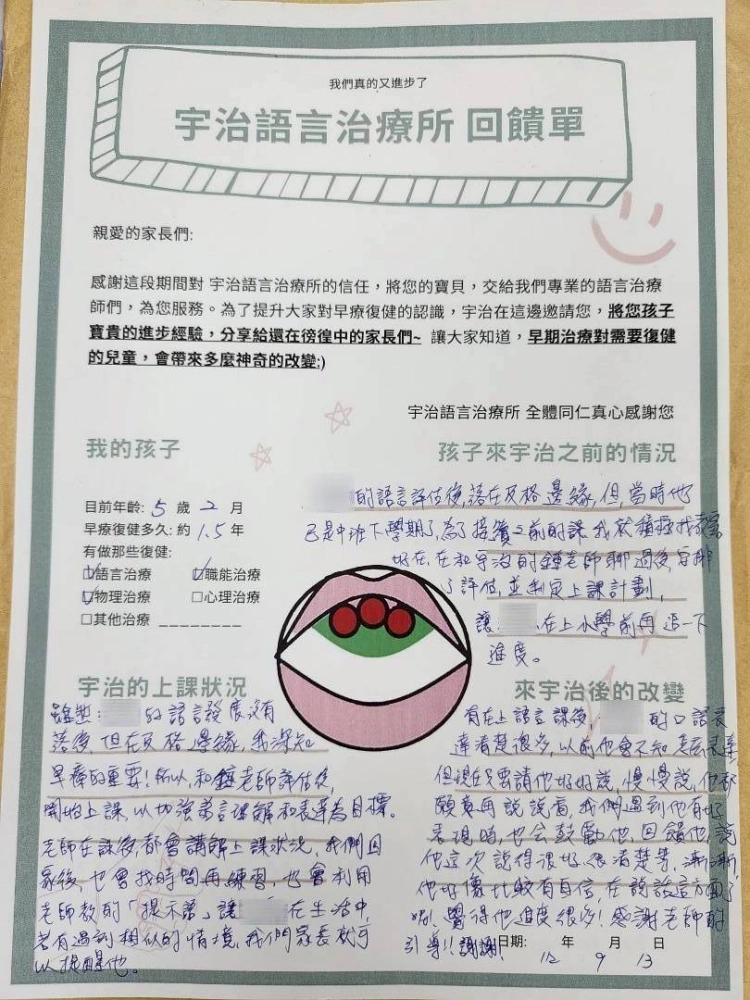 我們真的又進步了
宇治語言治療所 回饋單
親愛的家長們:
感謝這段期間對 宇治語言治療所的信任，將您的寶貝，交給我們專業的語言治療
師們，為您服務。為了提升大家對早療復健的認識，宇治在這邊邀請您，將您孩子
寶貴的進步經驗，分享給還在徬徨中的家長們~ 讓大家知道，早期治療對需要復健
的兒童，會帶來多麼神奇的改變:)
宇治語言治療所 全體同仁真心感謝您
我的孩子
目前年齡: 5 歲 2 月
早療復健多久: 約 1.5 年
有做那些復健:
☑語言治療 ☑職能治療
☑物理治療 □心理治療
□其他治療 ________
孩子來宇治之前的情況
的語言評估後,落在及格邊緣,但,當時他
已是中班下學期了,為了接續之前的課,我就積極找
好在,在和宇治的鍾老師聊過後,安排
了評估,並制定上課計劃,
讓 在上小學前再追一下
進度。
宇治的上課狀況
雖然 的語言發展沒有
落後,但在及格邊緣,我深知
早療的重要!所以,和鍾老師評估後,
開始上課,以加強語言理解和表達為目標。
老師在課後,都會講解上課狀況,我們回
家後,也會找時間再練習,也會利用
老師教的「提示語」讓 在生活中,
若有遇到相似的情境,我們家長就可
以提醒他。
來宇治後的改變
有在上語言課後, 的口語表
達清楚很多,以前他會不知怎麼表達
但現在只要請他好好說,慢慢說,他都
願意再說說看,我們遇到他有好
表現時,也会鼓勵他,回饋他,說
他這次說得很好、很清楚等,漸漸
他好像比較有自信,在說話這方面了
覺得他進度很多!感謝老師的
引導!!謝謝
日期: 12 年 9 月 13 日